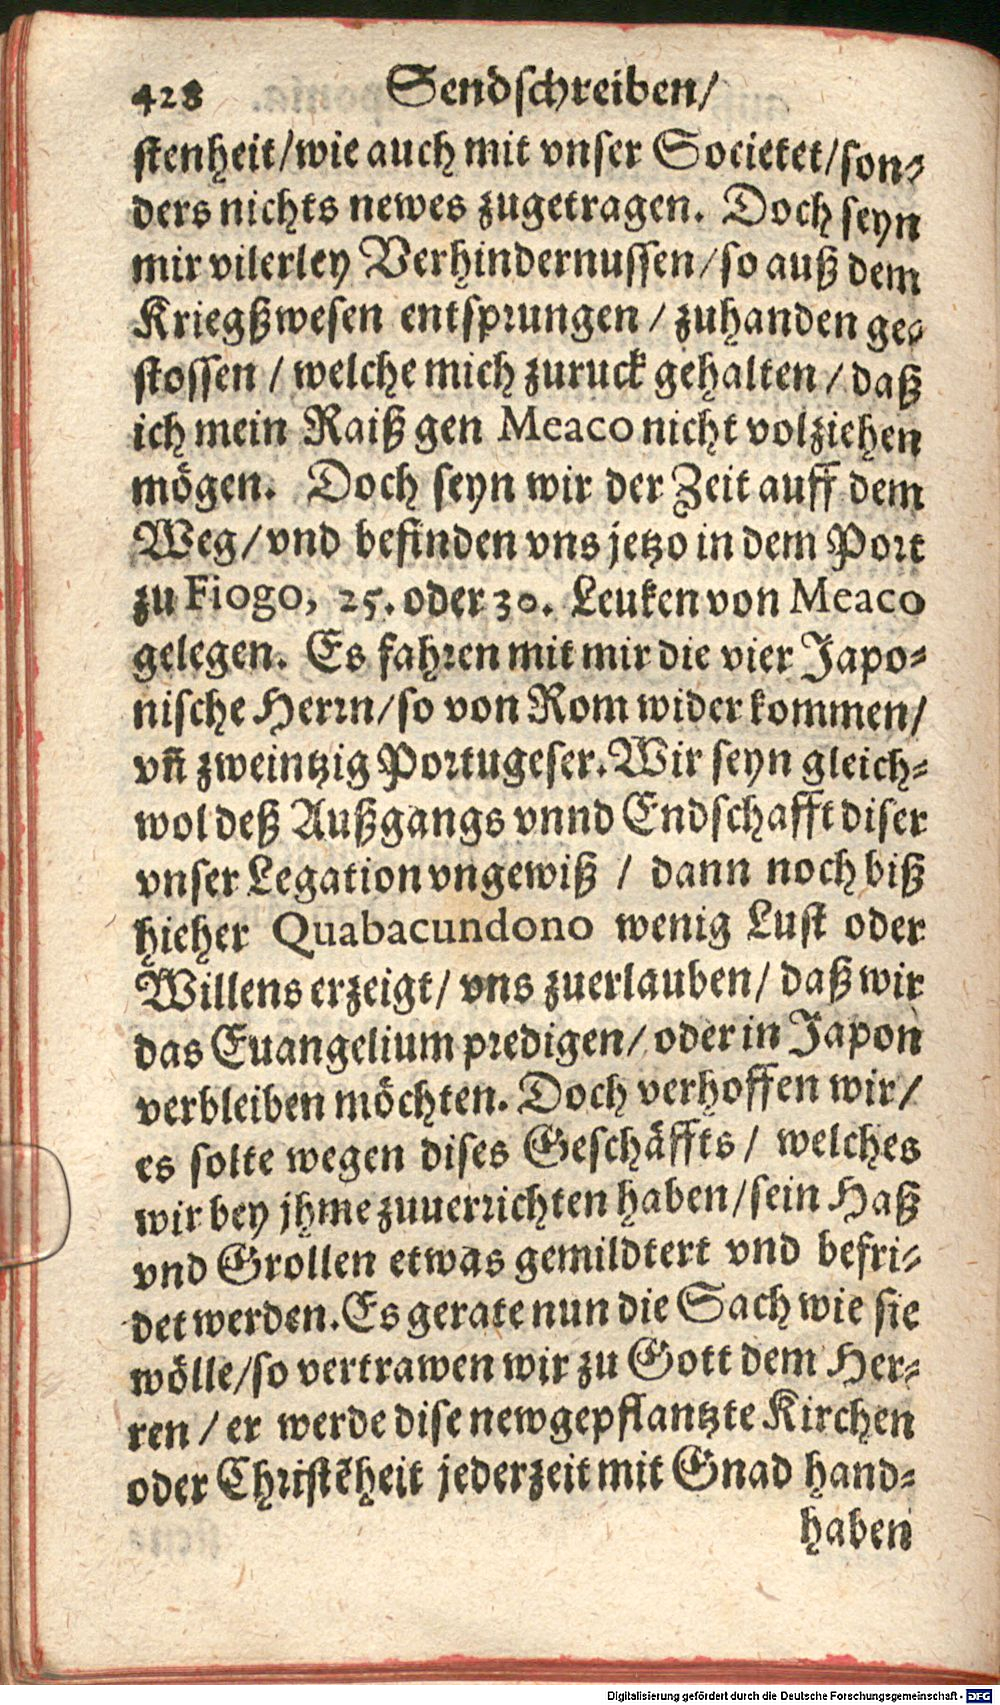 428 Sendschreiben/
stenheit/wie auch mit vnser Societet/son-
ders nichts newes zugetragen. Doch seyn
mir vilerley Verhindernussen/so auß dem
Kriegßwesen entsprungen / zuhanden ge-
stossen / welche mich zuruck gehalten / daß
ich mein Raiß gen Meaco nicht volziehen
mögen. Doch seyn wir der Zeit auff dem
Weg/vnd befinden vns jetzo in dem Port
zu Fiogo, 25. oder 30. Leuken von Meaco
gelegen. Es fahren mit mir die vier Japo-
nische Herrn/so von Rom wider kommen/
vñ zweintzig Portugeser. Wir seyn gleich-
wol deß Außgangs vnnd Endschafft diser
vnser Legation vngewiß / dann noch biß
hieher Quabacundono wenig Lust oder
Willens erzeigt/ vns zuerlauben/ daß wir
das Euangelium predigen/ oder in Japon
verbleiben möchten. Doch verhoffen wir/
es solte wegen dises Geschäffts / welches
wir bey jhme zuuerrichten haben/sein Haß
vnd Grollen etwas gemildtert vnd befri-
det werden. Es gerate nun die Sach wie sie
wölle/so vertrawen wir zu Gott dem Her-
ren / er werde dise newgepflantzte Kirchen
oder Christẽheit jederzeit mit Gnad hand-
haben
Digitalisierung gefördert durch die Deutsche Forschungsgemeinschaft - DFG